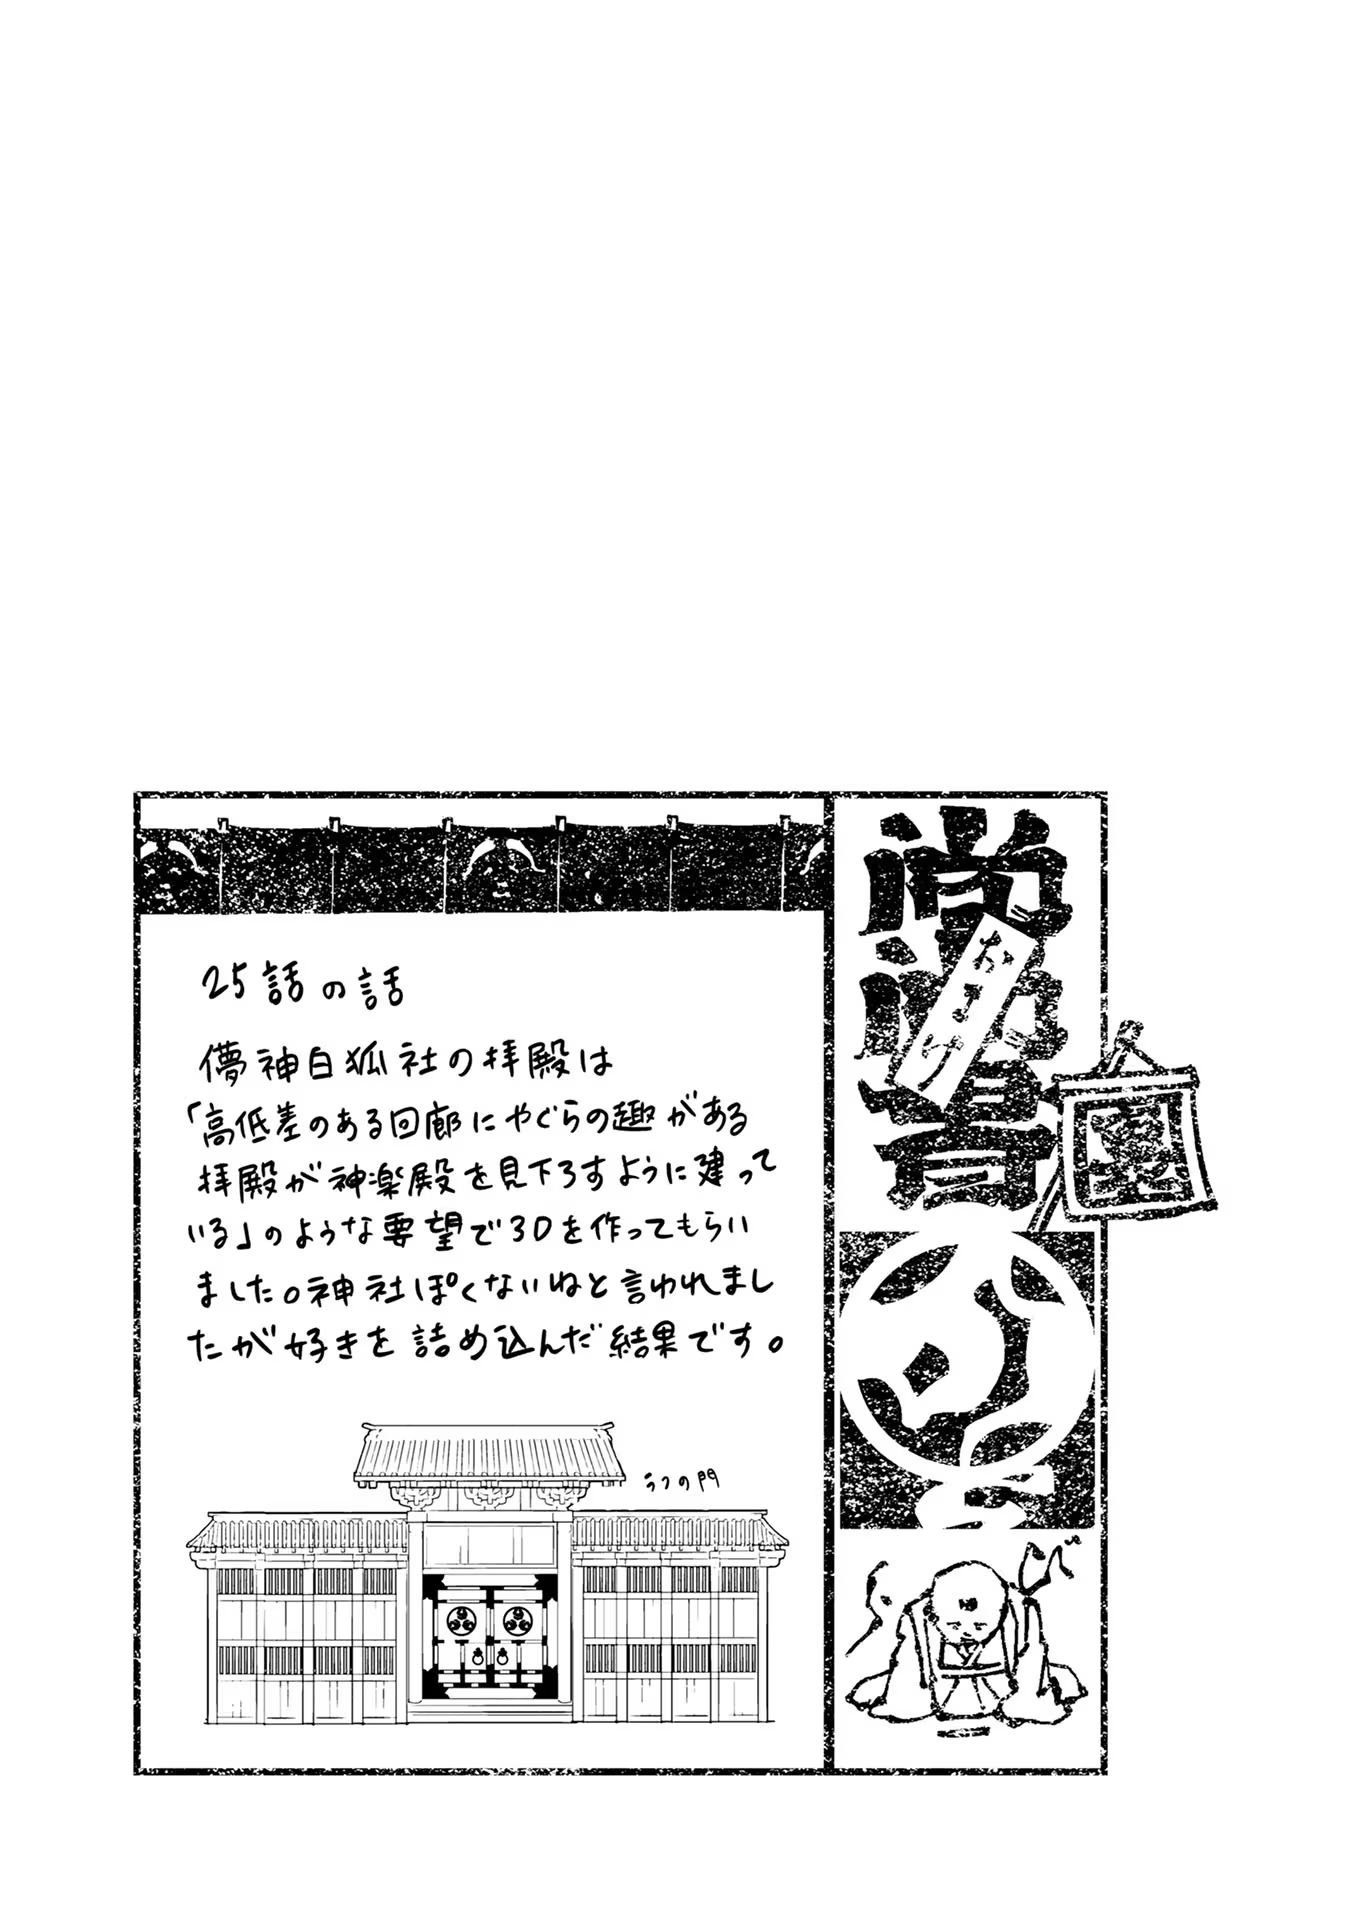 25話の話
儚神白狐社の拝殿は
「高低差のある回廊にやぐらの趣がある
拝殿が神楽殿を見下ろすように建って
いる」のような要望で3Dを作ってもらい
ました。神社ぽくないねと言われまし
たが好きを詰め込んだ結果です。
ラフの門
おまけ